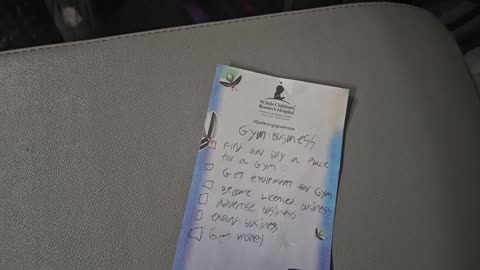 St. Jude Children's
Research Hospital
GYM BUSINESS
Find and buy a Place
for a GYM
Get equipment for Gym
Become Licensed business
advertise business
expand business
Get money